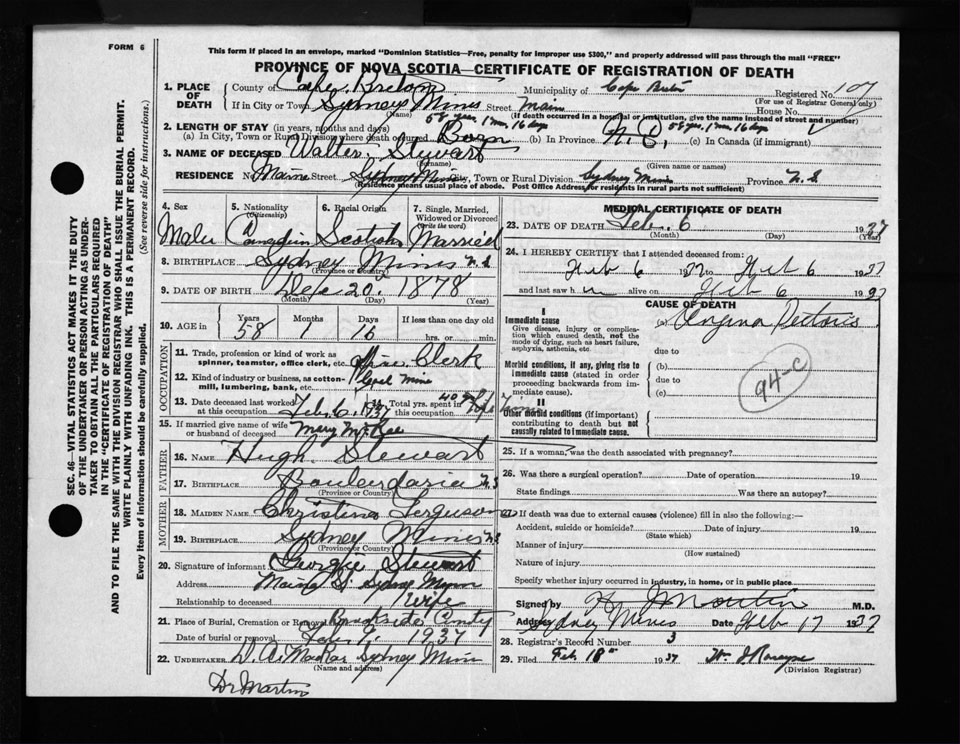 FORM 6
This form if placed in an envelope, marked "Dominion Statistics—Free, penalty for improper use $300," and properly addressed will pass through the mail "FREE"
PROVINCE OF NOVA SCOTIA—CERTIFICATE OF REGISTRATION OF DEATH
1. PLACE OF DEATH { County of Cape Breton Municipality of Cape Breton Registered No.
(For use of Registrar General only)
If in City or Town Sydney Mines Street Main House No.
(Name) (If death occurred in a hospital or institution, give the name instead of street and number)
58 years 1 mo 16 days 58 years 1 mo 16 days
2. LENGTH OF STAY (in years, months and days)
(a) In City, Town or Rural Division where death occurred Born (b) In Province N.S. (c) In Canada (if immigrant)
3. NAME OF DECEASED Walter Stewart
(Surname) (Given name or names)
RESIDENCE No. Main Street Sydney Mines City, Town or Rural Division Sydney Mines Province N.S
(Residence means usual place of abode. Post Office Address for residents in rural parts not sufficient)
4. Sex Male
5. Nationality (Citizenship) Canadian
6. Racial Origin Scotish
7. Single, Married, Widowed or Divorced (Write the word) Married
8. BIRTHPLACE Sydney Mines N.S
(Province or Country)
9. DATE OF BIRTH Dec 20. 1878
(Month) (Day) (Year)
10. AGE in { Years 58 Months 1 Days 16 If less than one day old hrs. or min.
OCCUPATION
11. Trade, profession or kind of work as spinner, teamster, office clerk, etc. Office Clerk
12. Kind of industry or business, as cotton-mill, lumbering, bank, etc. Coal Mine
13. Date deceased last worked at this occupation Feb. 6. 1937 14. Total yrs. spent in this occupation 40
15. If married give name of wife or husband of deceased Mary McKee
FATHER
16. NAME Hugh Stewart
17. BIRTHPLACE Boulardarie N.S
(Province or Country)
MOTHER
18. MAIDEN NAME Christine Ferguson
19. BIRTHPLACE Sydney Mines N.S
(Province or Country)
20. Signature of informant Georgie Stewart
Address Main St. Sydney Mines
Relationship to deceased Wife
21. Place of Burial, Cremation or Removal Brookside Cemty
Date of burial or removal Feb 9. 1937
22. UNDERTAKER D. A. MacRae Sydney Mines
(Name and address)
Dr Martin
MEDICAL CERTIFICATE OF DEATH
23. DATE OF DEATH Feb. 6 1937
(Month) (Day) (Year)
24. I HEREBY CERTIFY that I attended deceased from:
Feb 6 1937 to Feb 6 1937
and last saw h alive on Feb 6 1937
CAUSE OF DEATH
I
Immediate cause
Give disease, injury or complication which caused death, not the mode of dying, such as heart failure, asphyxia, asthenia, etc.
(a) Angina Pectoris
due to
Morbid conditions, if any, giving rise to immediate cause (stated in order proceeding backwards from immediate cause).
(b)
due to
(c)
94-C
II
Other morbid conditions (if important) contributing to death but not causally related to immediate cause.
25. If a woman, was the death associated with pregnancy?
26. Was there a surgical operation? Date of operation 19
State findings Was there an autopsy?
27. If death was due to external causes (violence) fill in also the following:—
Accident, suicide or homicide? Date of injury 19
(State which)
Manner of injury
(How sustained)
Nature of injury
Specify whether injury occurred in industry, in home, or in public place
Signed by M.D.
Address Sydney Mines Date Feb 17 1937
28. Registrar's Record Number 3
29. Filed Feb 18th 1937
(Division Registrar)
SEC. 46—VITAL STATISTICS ACT MAKES IT THE DUTY
OF THE UNDERTAKER OR PERSON ACTING AS UNDER-
TAKER TO OBTAIN ALL THE PARTICULARS REQUIRED
IN THE "CERTIFICATE OF REGISTRATION OF DEATH"
AND TO FILE THE SAME WITH THE DIVISION REGISTRAR WHO SHALL ISSUE THE BURIAL PERMIT.
WRITE PLAINLY WITH UNFADING INK. THIS IS A PERMANENT RECORD.
Every item of information should be carefully supplied. (See reverse side for instructions.)